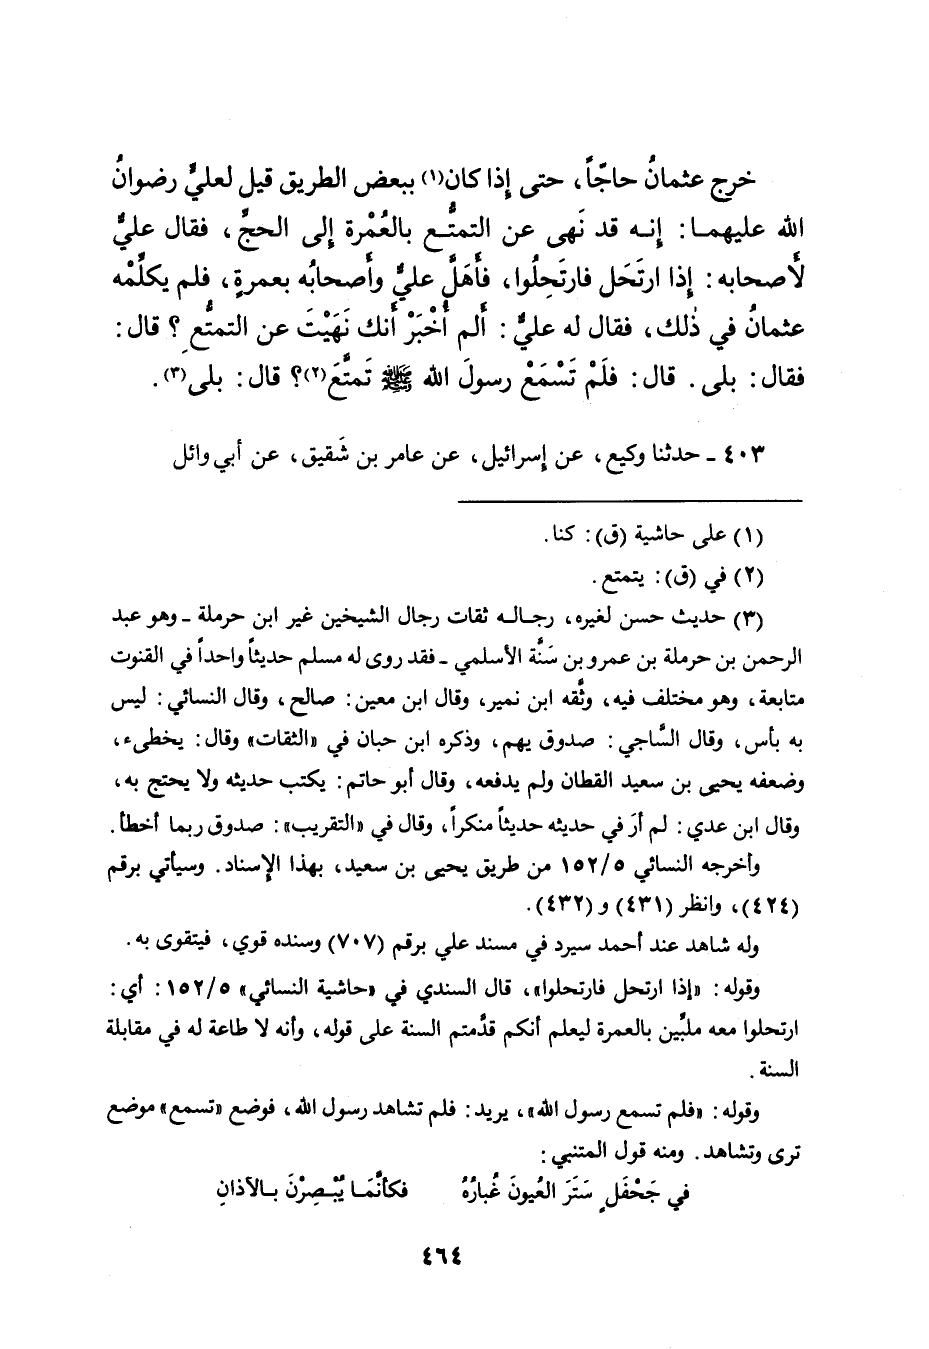 خرج عثمانُ حاجّاً، حتى إذا كان(١) ببعض الطريق قيل لعليٍّ رضوانُ
الله عليهما: إنه قد نَهى عن التمتُّع بالعُمْرة إلى الحجِّ، فقال عليٌّ
لأصحابه: إذا ارتَحَل فارتَحِلُوا، فأَهَلَّ عليٌّ وأَصحابُه بعمرةٍ، فلم يكلِّمْه
عثمانُ في ذٰلك، فقال له عليٌّ: أَلم أُخْبَرْ أَنك نَهَيْتَ عن التمتُّعِ؟ قال:
فقال: بلى. قال: فلَمْ تَسْمَعْ رسولَ الله ﷺ تَمتَّعَ(٢)؟ قال: بلى(٣).
٤٠٣ ـ حدثنا وكيع، عن إسرائيل، عن عامر بن شَقيق، عن أبي وائل
(١) على حاشية (ق): كنا.
(٢) في (ق): يتمتع.
(٣) حديث حسن لغيره، رجاله ثقات رجال الشيخين غير ابن حرملة ـ وهو عبد
الرحمن بن حرملة بن عمرو بن سَنَّة الأسلمي ـ فقد روى له مسلم حديثاً واحداً في القنوت
متابعة، وهو مختلف فيه، وثَّقه ابن نمير، وقال ابن معين: صالح، وقال النسائي: ليس
به بأس، وقال السَّاجي: صدوق يهم، وذكره ابن حبان في «الثقات» وقال: يخطىء،
وضعفه يحيى بن سعيد القطان ولم يدفعه، وقال أبو حاتم: يكتب حديثه ولا يحتج به،
وقال ابن عدي: لم أرَ في حديثه حديثاً منكراً، وقال في «التقريب»: صدوق ربما أخطأ.
وأخرجه النسائي ١٥٢/٥ من طريق يحيى بن سعيد، بهذا الإسناد. وسيأتي برقم
(٤٢٤)، وانظر (٤٣١) و(٤٣٢).
وله شاهد عند أحمد سيرد في مسند علي برقم (٧٠٧) وسنده قوي، فيتقوى به.
وقوله: «إذا ارتحل فارتحلوا»، قال السندي في «حاشية النسائي» ١٥٢/٥: أي:
ارتحلوا معه ملبِّين بالعمرة ليعلم أنكم قدَّمتم السنة على قوله، وأنه لا طاعة له في مقابلة
السنة.
وقوله: «فلم تسمع رسول الله»، يريد: فلم تشاهد رسول الله، فوضع «تسمع» موضع
ترى وتشاهد. ومنه قول المتنبي:
في جَحْفَلٍ سَتَرَ العُيونَ غُبارُهُ فكأنَّمَا يُبْصِرْنَ بالآذانِ
٤٦٤